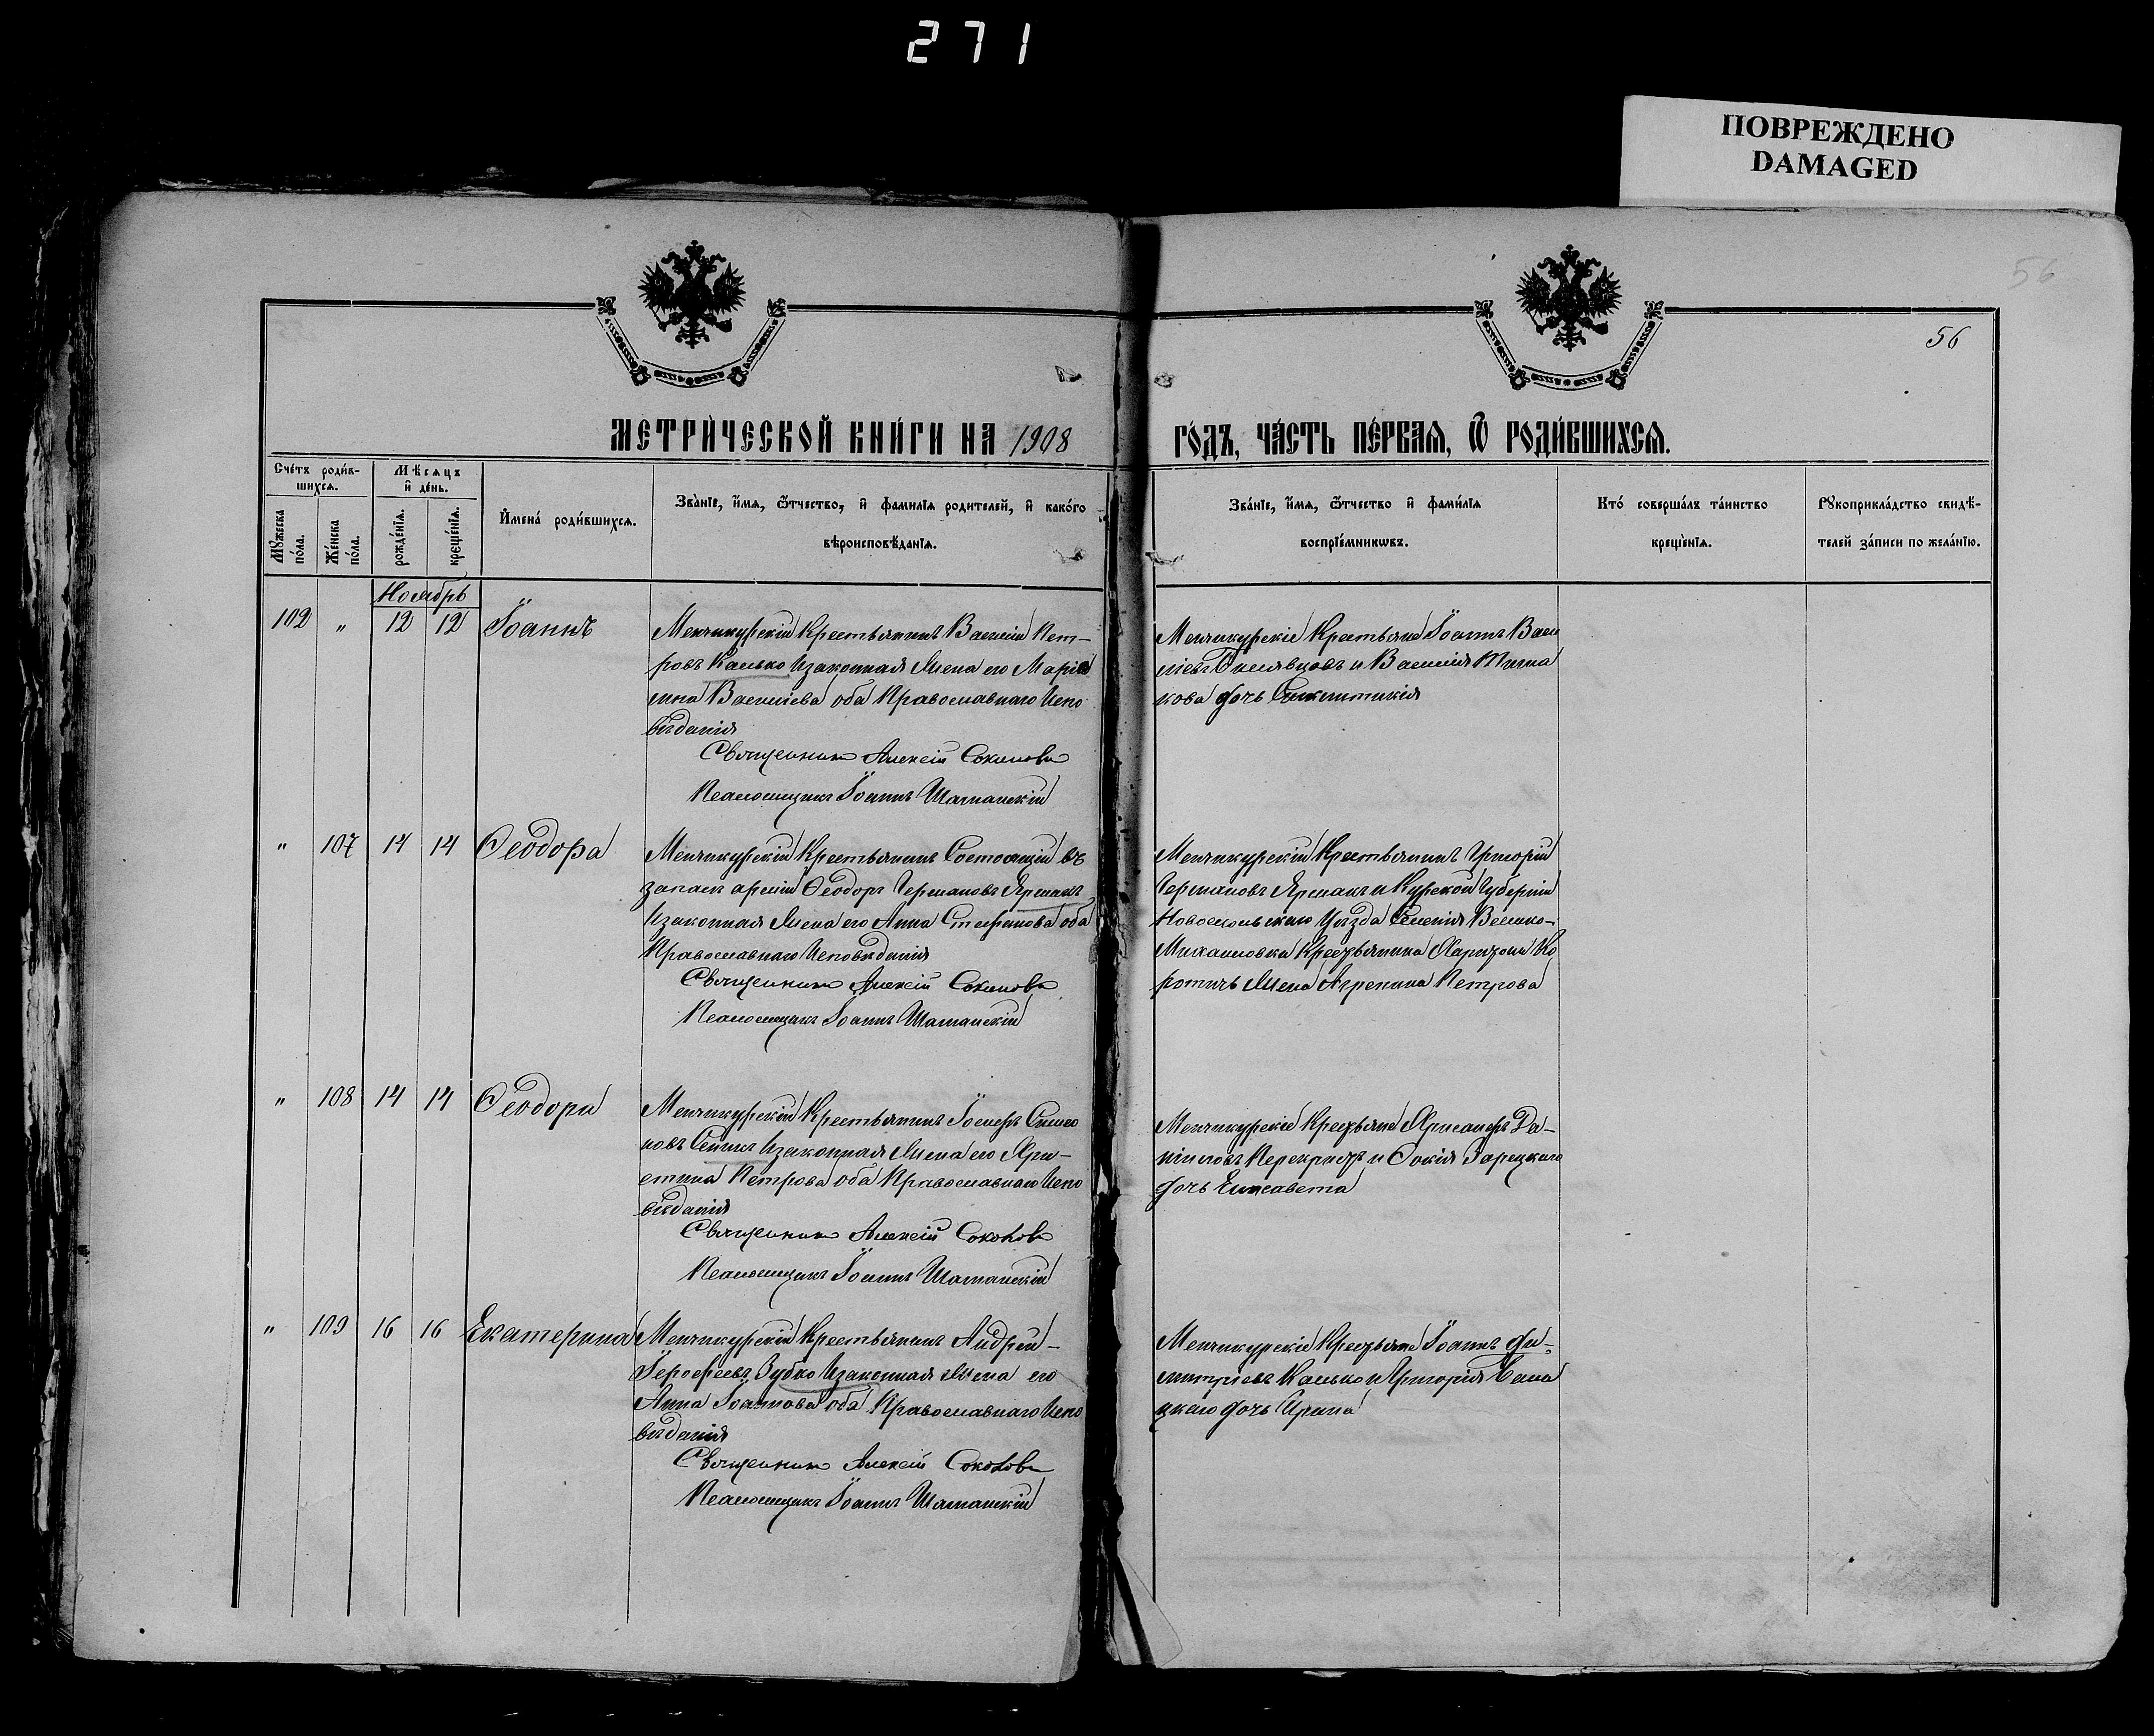 271
ПОВРЕЖДЕНО
DAMAGED
56
56
МЕТРИ́ЧЕСКОЙ КНИ́ГИ НА 1908
ГО́ДЪ, ЧА́СТЬ ПЕ́РВАѦ, Ѿ РОДИ́ВШИХСѦ.
Сче́тъ роди́в-
шихсѧ.
Мѣсѧцъ
и҆ де́нь.
Мꙋжеска
по́ла.
Же́нска
по́ла.
рожде́нїѧ.
креще́нїѧ.
И҆мена́ роди́вшихсѧ.
Зва́нїе, и҆́мѧ, ѻ҆́тчество, и҆ фами́лїѧ родителей, и҆ како́го
вѣроисповѣ́данїѧ.
Зва́нїе, и҆́мѧ, ѻ҆́тчество и҆ фами́лїѧ
воспрїе́мникѡвъ.
Кто́ соверша́лъ та́инство
креще́нїѧ.
Рꙋкоприкла́дство свидѣ́-
телей за́писи по жела́нїю.
Ноябрь
102 " 12 12 Іоаннъ
Менчикурскій Крестьянинъ Василій Пет-
ровъ Касько и законная жена его Марі
Василіева оба Православнаго Испо
вѣданія
Священникъ Алексій Соколовъ
Псаломщикъ Іоаннъ Шаманскій
Менчикурскіе Крестьяне Іоаннъ Васи
ліевъ и Василія
кова дочь Синклитикія
" 107 14 14 Ѳеодора
Менчикурскій Крестьянинъ Состоящій въ
запасѣ арміи Ѳеодоръ Германовъ Ярмакъ
и законная жена его Анна Стефанова оба
Православнаго Исповѣданія
Священникъ Алексій Соколовъ
Псаломщикъ Іоаннъ Шаманскій
Менчикурскій Крестьянинъ Григорій
Германовъ Ярмакъ и Курской Губерніи
Новооскольскаго Уѣзда Селенія Велико-
Михайловки Крестьянина Харитона Ко
ротичъ жена Агрепина Петрова
" 108 14 14 Ѳеодора
Менчикурскій Крестьянинъ Іосифъ Симео
новъ и законная жена его Хри-
стина Петрова оба Православнаго Испо
вѣданія
Священникъ Алексій Соколовъ
Псаломщикъ Іоаннъ Шаманскій
Менчикурскіе Крестьяне Хрисанфъ Да-
ніиловъ Перекрестъ и Ѳокія Зарецкаго
дочь Елисавета
" 109 16 16 Екатерина
Менчикурскій Крестьянинъ Андрей
Іерофеевъ Зубко и законная жена его
Анна Іоаннова оба Православнаго Испо
вѣданія
Священникъ Алексій Соколовъ
Псаломщикъ Іоаннъ Шаманскій
Менчикурскіе Крестьяне Іоаннъ Ди-
митріевъ Касько и Григорія
цкаго дочь Ирина